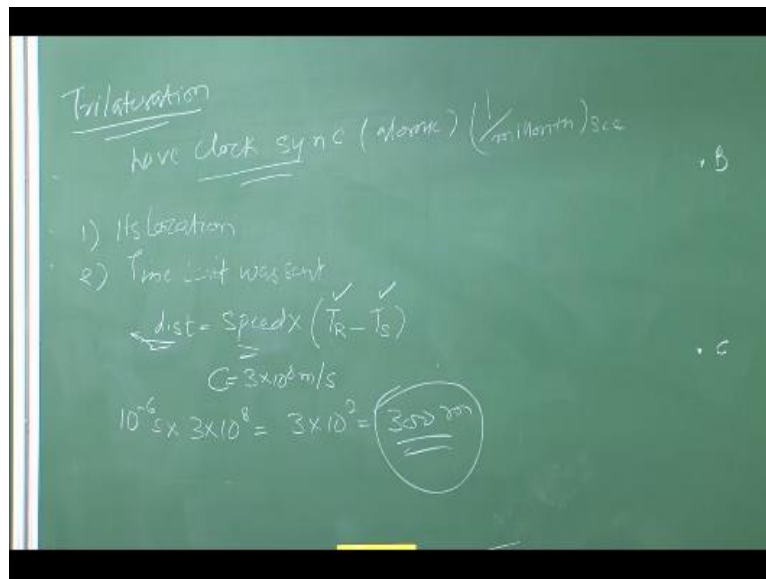 Trilateration
have clock sync (atomic) (1/millionth) sec
. B
1) Its location
2) Time unit was sent
dist = speed x (T_R - T_S)
. C
C = 3x10^8 m/s
10^-6 s x 3x10^8 = 3x10^2 = 300 m